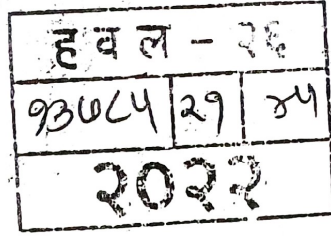 ह व ल - २६
१३७८५ २१ ३५
२०२२